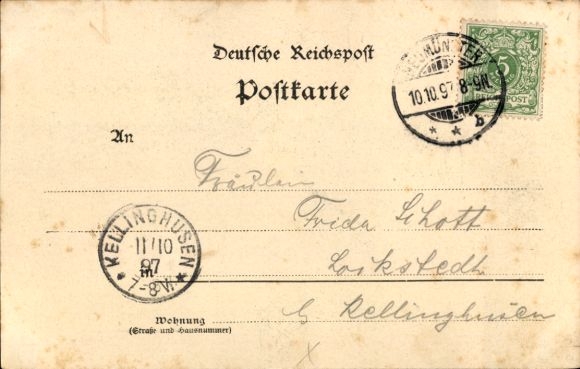 Deutsche Reichspost
Postkarte
NEUMÜNSTER
10.10.97.8-9N.
b
5
REICHSPOST
An
Fräulein
Frida Schott
Lockstedt
in
b Kellinghusen
KELLINGHUSEN
11/10
97
7-8V.
Wohnung
(Straße und Hausnummer)